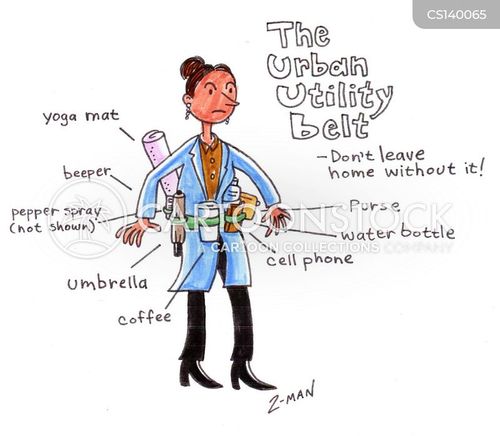 CS140065
The
Urban
Utility
belt
-Don't leave
home without it!
yoga mat
beeper
pepper spray
(not shown)
umbrella
coffee
Purse
water bottle
cell phone
CARTOONSTOCK
A CARTOON COLLECTIONS COMPANY
Z-MAN